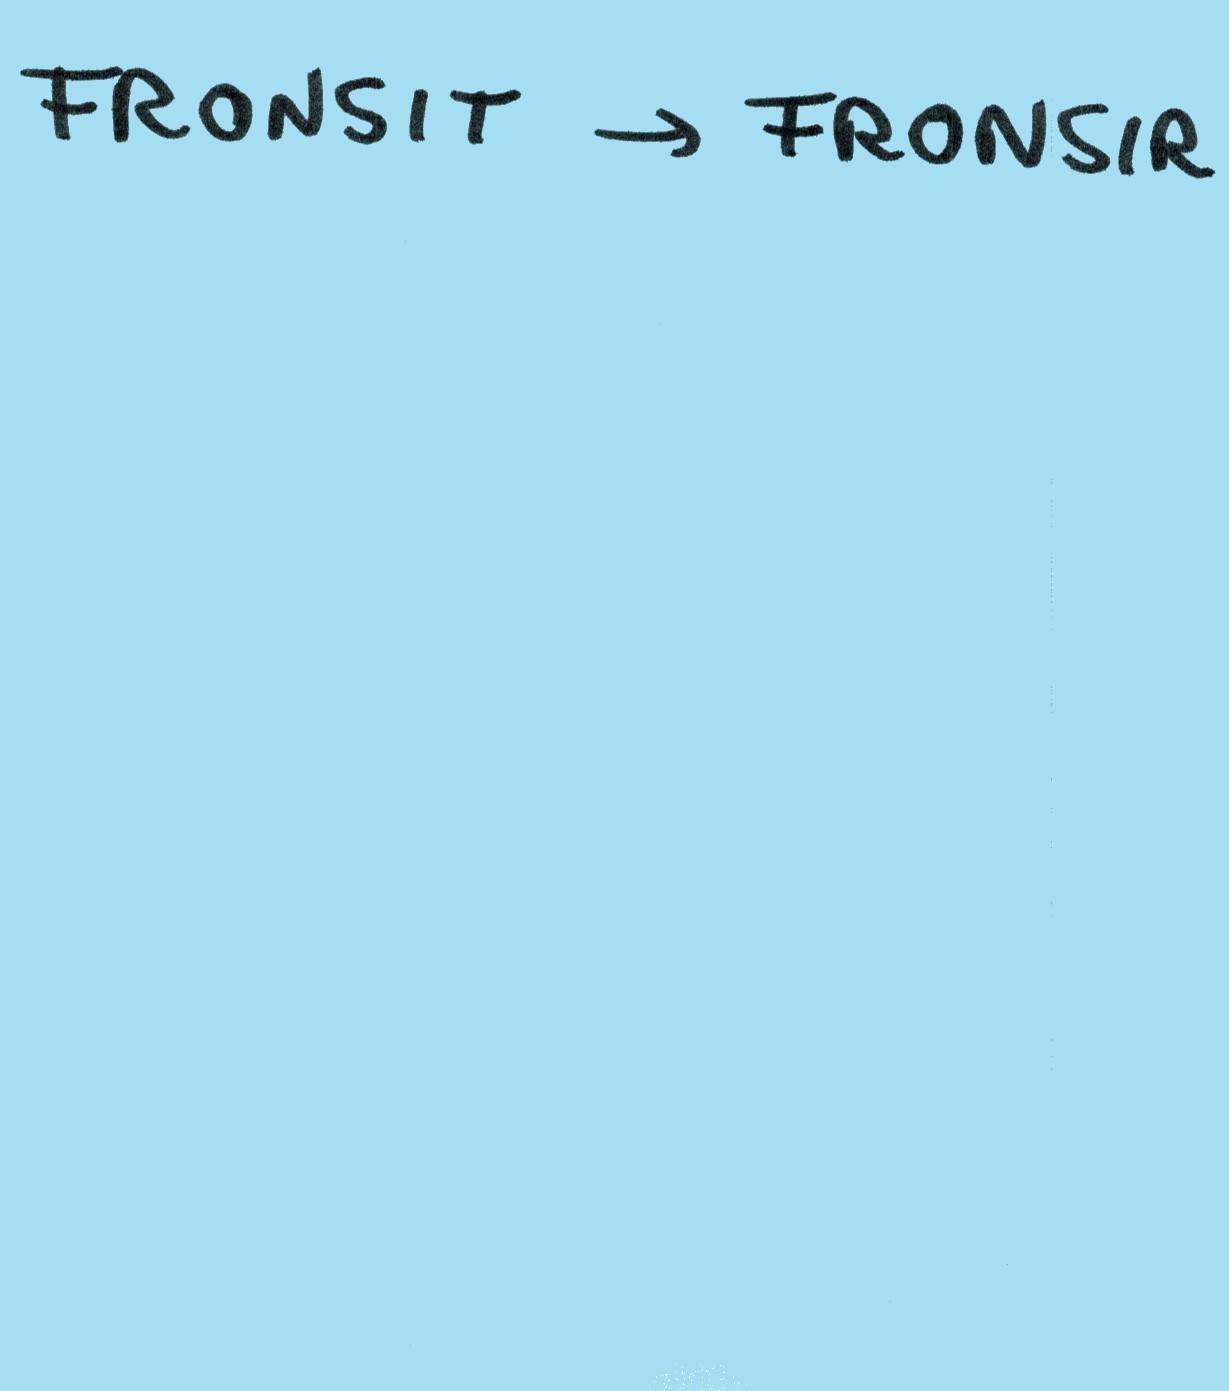 FRONSIT → FRONSIR